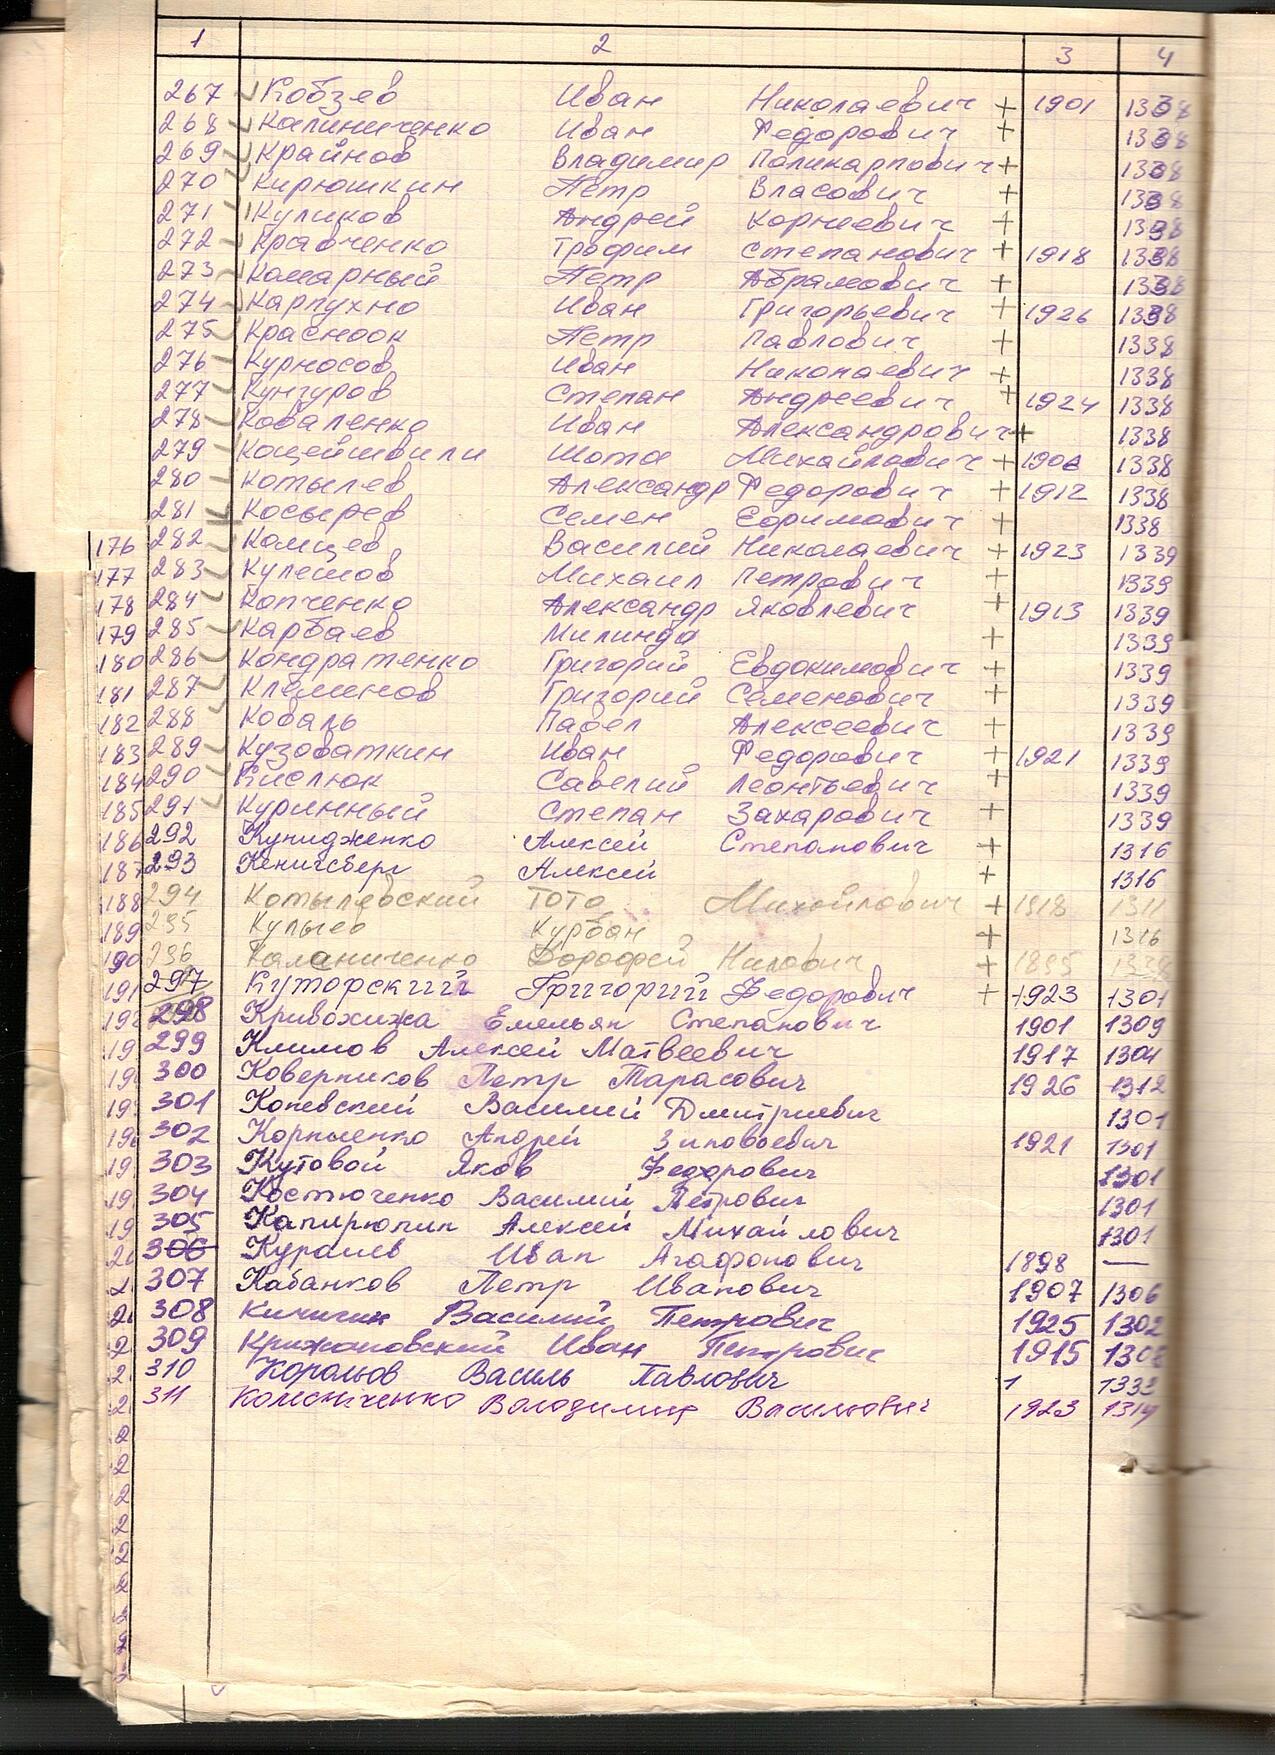 1 2 3 4
267 Кобзев Иван Николаевич + 1901 1338
268 Калиниченко Иван Федорович + 1338
269 Крайнов Владимир Поликарпович + 1338
270 Кирюшкин Петр Власович + 1338
271 Куликов Андрей Корнеевич + 1338
272 Кравченко Трофим Степанович + 1918 1338
273 Комарный Петр Абрамович + 1338
274 Карпухно Иван Григорьевич + 1926 1338
275 Красноок Петр Павлович + 1338
276 Курносов Иван Николаевич + 1338
277 Кунгуров Степан Андреевич + 1924 1338
278 Коваленко Иван Александрович + 1338
279 Коцейшвили Шота Михайлович + 1906 1338
280 Котылев Александр Федорович + 1912 1338
281 Косырев Семен Ефимович + 1338
176 282 Комцев Василий Николаевич + 1923 1339
177 283 Кулешов Михаил Петрович + 1339
178 284 Копченко Александр Яковлевич + 1913 1339
179 285 Карбаев Милиндо + 1339
180 286 Кондратенко Григорий Евдокимович + 1339
181 287 Клеменов Григорий Семенович + 1339
182 288 Коваль Павел Алексеевич + 1339
183 289 Кузоваткин Иван Федорович + 1921 1339
184 290 Кислюк Савелий Леонтьевич + 1339
185 291 Куринный Степан Захарович + 1339
186 292 Кунидженко Алексей Степанович + 1316
187 293 Кенигсберг Алексей + 1316
188 294 Котылевский Тото Михайлович + 1918 1311
189 295 Кулыев Курбан + 1316
190 296 Каланиченко Дорофей Нилович + 1895 1339
191 297 Куторский Григорий Федорович + 1923 1301
298 Кривохижа Емельян Степанович 1901 1309
299 Климов Алексей Матвеевич 1917 1304
300 Коверников Петр Тарасович 1926 1312
301 Копевский Василий Дмитриевич 1301
302 Корниенко Андрей Зиновьевич 1921 1301
303 Кутовой Яков Федорович 1301
304 Костюченко Василий Петрович 1301
305 Капирюлин Алексей Михайлович 1301
306 Кураев Иван Агафонович 1898 —
307 Кабанков Петр Иванович 1907 1306
308 Кичигин Василий Петрович 1925 1302
309 Крижановский Иван Петрович 1915 130
310 Корольов Василь Павлович 1 133
311 Колесніченко Володимир Васильович 1923 1314